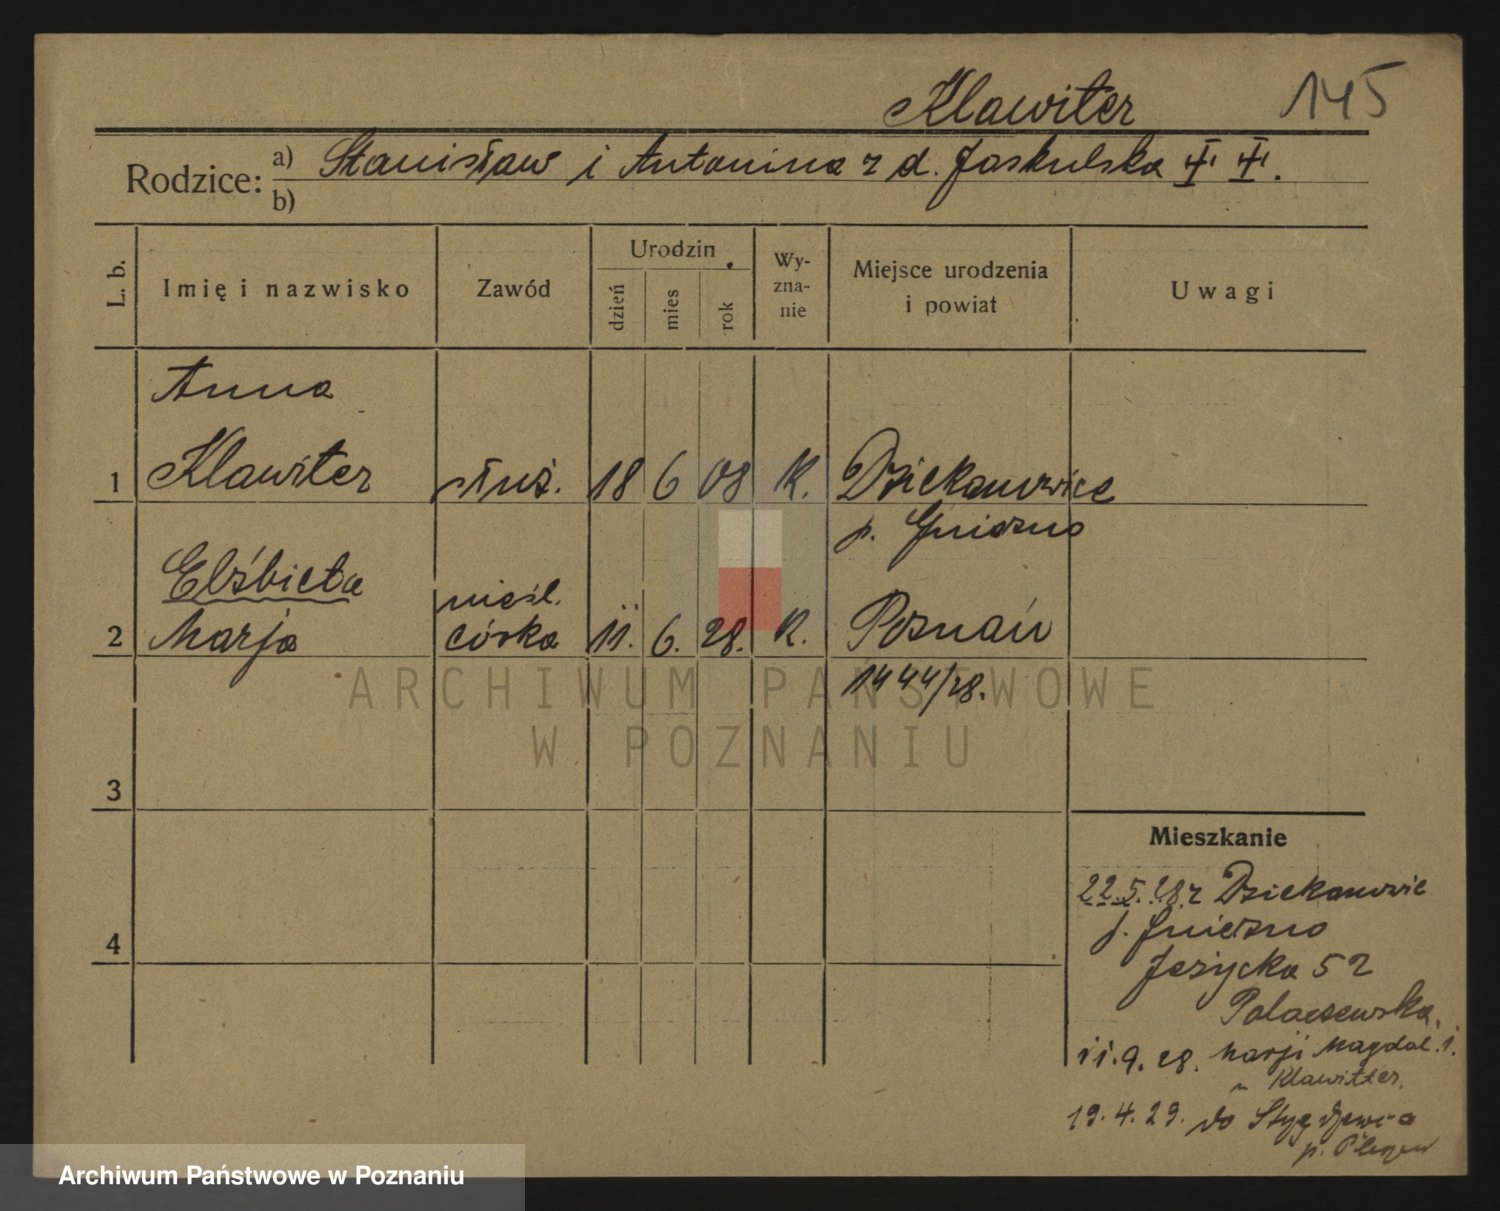 Klawiter
145
Rodzice: a) Stanisław i Antonina z d. Jaskulska
b)
L. b. Imię i nazwisko Zawód Urodzin dzień mies rok Wy-zna-nie Miejsce urodzenia i powiat Uwagi
Anna
1 Klawiter służ. 18 6 08 K. Dziekanowice
p. Gniezno
Elżbieta nieśl.
2 Marja córka 11. 6. 28. K. Poznań
1444/28.
3
4
Mieszkanie
22.5.28 z Dziekanowic
p. Gniezno
Jeżycka 52
11.9.28. Marji Magdal. 1.
u Klawitter.
19.4.29. do
ARCHIWUM PAŃSTWOWE
W POZNANIU
Archiwum Państwowe w Poznaniu